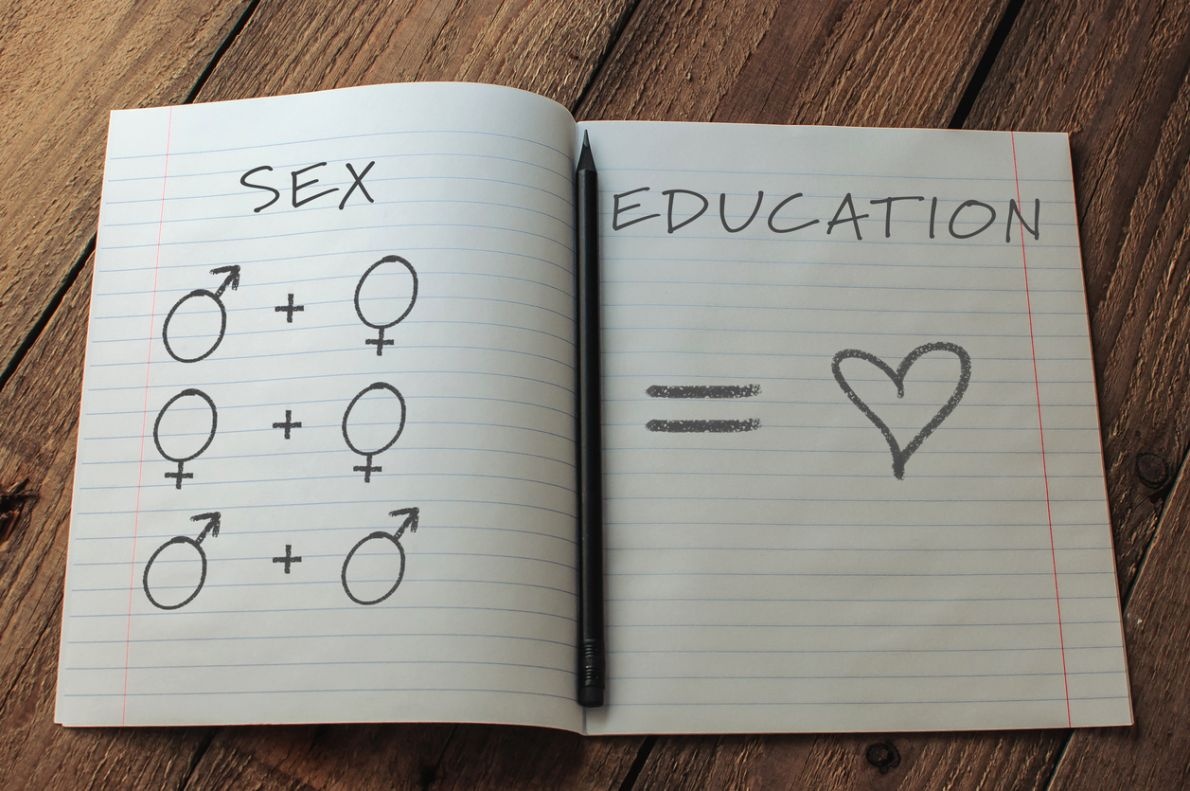 SEX EDUCATION
♂ + ♀
♀ + ♀ = ♡
♂ + ♂